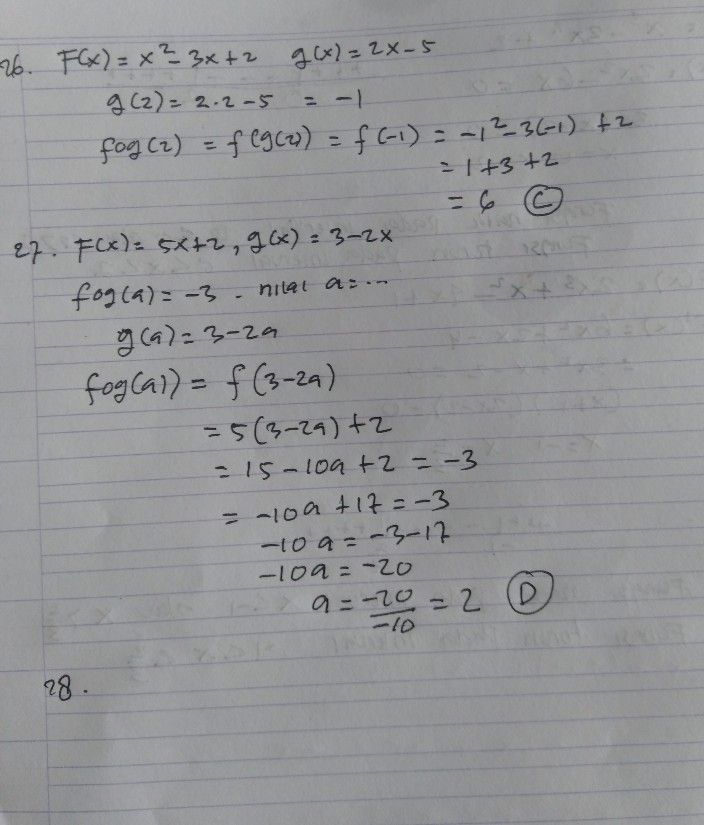 26. F(x) = x² - 3x + 2 g(x) = 2x - 5
g(2) = 2.2 - 5 = -1
fog(2) = f(g(2)) = f(-1) = -1² - 3(-1) + 2
= 1 + 3 + 2
= 6 C
27. F(x) = 5x + 2, g(x) = 3 - 2x
fog(a) = -3 . nilai a = ...
g(a) = 3 - 2a
fog(a)) = f(3 - 2a)
= 5(3 - 2a) + 2
= 15 - 10a + 2 = -3
= -10a + 17 = -3
-10a = -3 - 17
-10a = -20
a = -20/-10 = 2 D
28.